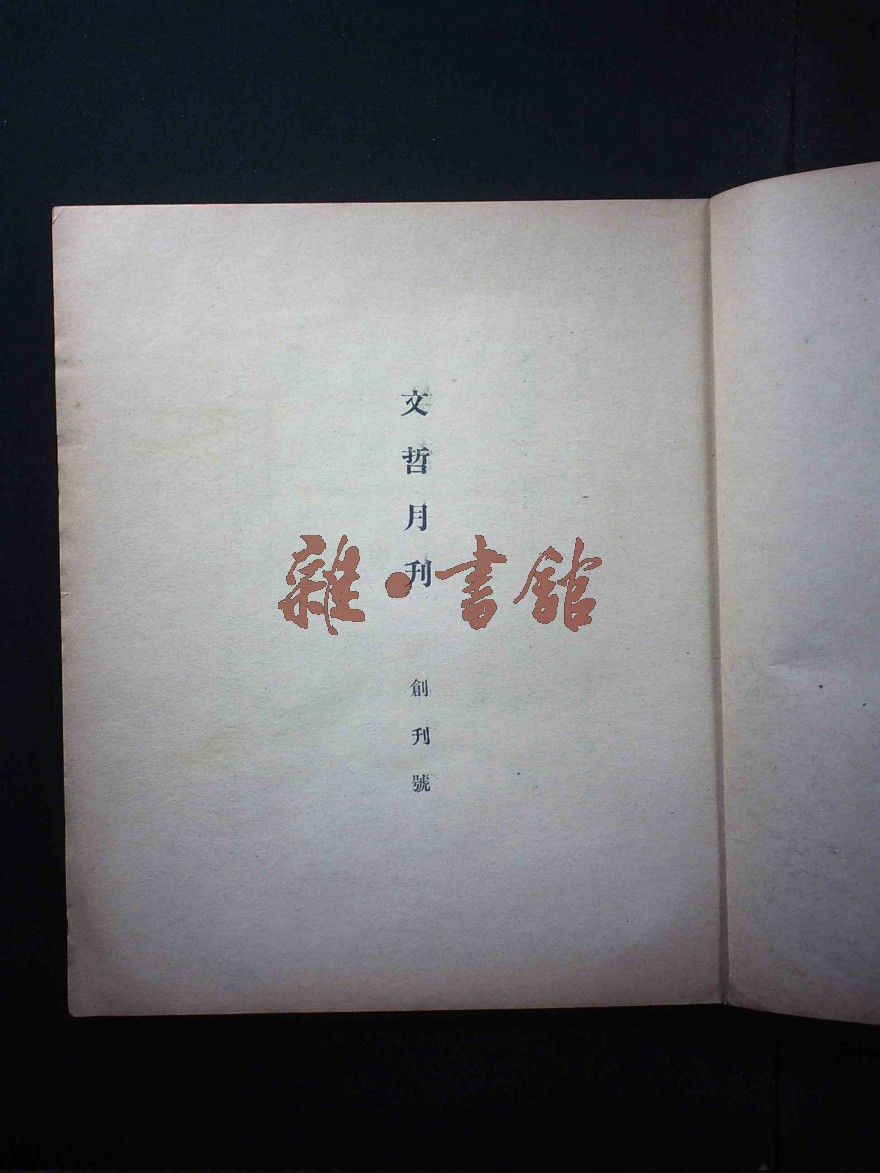 文哲月刊
創刊號
雜·書館